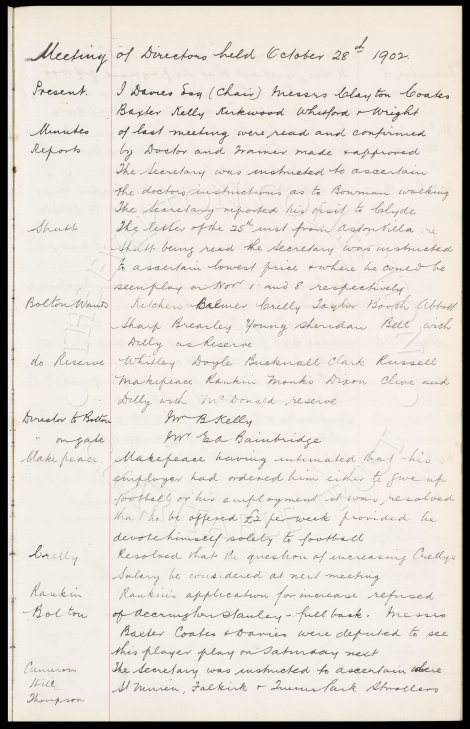 Meeting of Directors held October 28th 1902.
Present. J Davies Esq (Chair) Messrs Clayton Coates
Baxter Kelly Kirkwood Whitford & Wright
Minutes of last meeting were read and confirmed
Reports by Doctor and Trainer made & approved
The Secretary was instructed to ascertain
the doctors instructions as to Bowman walking
The Secretary reported his visit to Clyde
Shutt The letter of the 25th inst from Aston Villa re
Shutt being read the Secretary was instructed
to ascertain lowest price & where he could be
seen play on Novr 1 and 8 respectively
Bolton Wands Kitchen Balmer Crelly Taylor Booth Abbott
Sharp Brearley Young Sheridan Bell with
Dilly as Reserve
do Reserve Whitley Doyle Bucknall Clark Russell
Makepeace Rankin Monks Dixon Clive and
Dilly with McDonald reserve
Director to Bolton Mr B Kelly
" on gate Mr Bainbridge
Makepeace. Makepeace having intimated that his
employer had ordered him either to give up
football or his employment it was, resolved
that he be offered £2 per week provided he
devote himself solely to football
Crelly Resolved that the question of increasing Crellys
Salary be considered at next meeting
Rankin Rankins application for increase refused
Bolton of Accrington Stanley - full back. Messrs
Baxter Coates & Davies were deputed to see
this player play on Saturday next
Cameron The Secretary was instructed to ascertain where
Hill St Mirren, Falkirk & Queens Park Strollers
Thompson